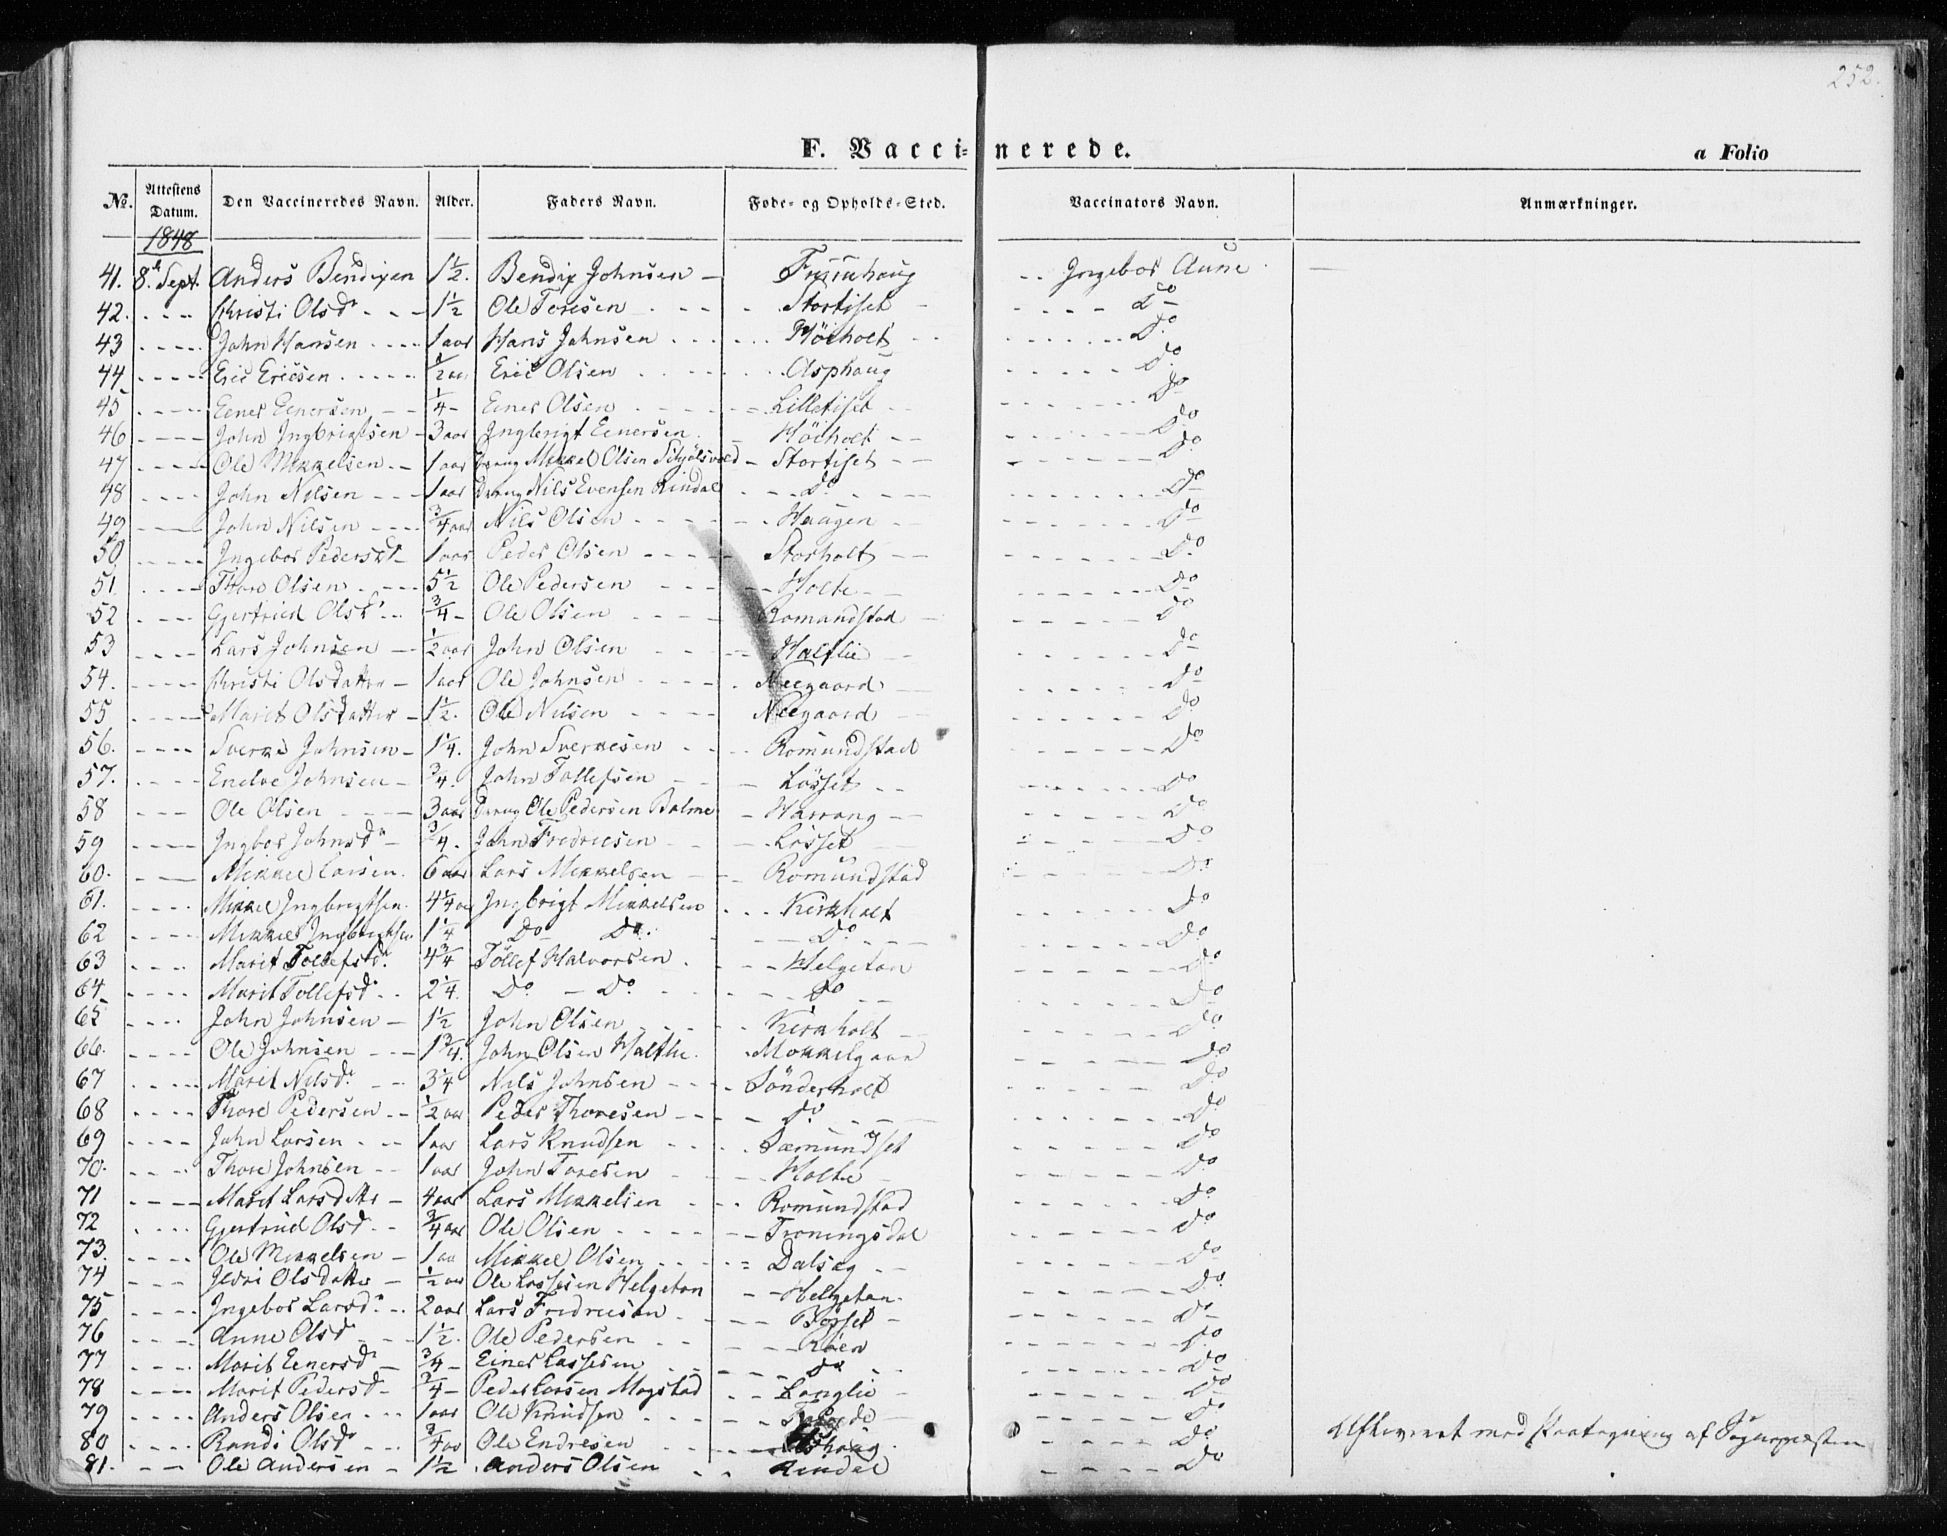 252.
F. Vaccinerede. a Folio
No. Attestens Datum. Den Vaccineredes Navn. Alder. Faders Navn. Føde- og Opholds-Sted. Vaccinators Navn. Anmærkninger.
1848
41. 8de Sept. Anders Bendixen 1½. Bendix Johnsen Ingebor Aune
42. Christi Olsdr 1½ Ole Toresen Stortiset Do
43 John Hansen 1 aar Hans Johnsen Höeholt Do
44 Eric Ericsen ½ aar Eric Olsen Asphaug Do
45 Eener Eenersen ¼ Eener Olsen Lilletiset Do
46 John Ingbrigtsen 3 aar Ingbrigt Eenersen Höeholt Do
47 Ole Mikkelsen 1 aar Dreng Mikkel Olsen Stortiset Do
48 John Nilsen 1 aar Dreng Nils Evensen Rindal Do Do
49 John Nilsen ¾ aar Nils Olsen Haugen Do
50 Ingebor Pedersdr 1 aar Peder Olsen Storholt Do
51. Thore Olsen 5½ Ole Pedersen Holte Do
52 Gjertrud Olsdr ¾ Ole Olsen Romundstad Do
53 Lars Johnsen ½ aar John Olsen Halflie Do
54. Christi Olsdatter 1 aar Ole Johnsen Neegaard Do
55 Marit Olsdatter 1½. Ole Nilsen Neegaard Do
56. Sverke Johnsen 1¼. John Sverkesen Romundstad Do
57. Endve Johnsen ¾. John Tollefsen Lösset Do
58 Ole Olsen 3 aar Dreng Ole Pedersen Bolme Harrang Do
59 Ingbor Johnsdr ¾. John Fredricsen Lösset Do
60. Mikkel Larsen. 6 aar Lars Mikkelsen Romundstad Do
61. Mikkel Ingbrigtsen. 4¼ aar Ingbrigt Mikkelsen Kirkholt Do
62 Mikkel Ingbrigtsen 1¼ Do Do. Do Do
63 Marit Tollefsdr. 4¾ Tollef Halvorsen Helgetan Do
64 Marit Tollefsdr 2¼. Do Do Do Do
65 John Johnsen 1½ John Olsen Kirkholt Do
66. Ole Johnsen 1¾. John Olsen Halflie. Mokkelgaar Do
67 Marit Nilsdr 3¼ Nils Johnsen Sönderholt Do
68 Thore Pedersen ½ aar Peder Thoresen Do Do
69 John Larsen 1 aar Lars Knudsen Sæmundset Do
70. Thore Johnsen 1 aar John Toresen Holte Do
71 Marit Larsdttr 4 aar Lars Mikkelsen Romundstad Do
72 Gjertrud Olsdr ¾ aar Ole Olsen Troningsdal Do
73. Ole Mikkelsen 1 aar Mikkel Olsen Dalseg Do
74 Olsdatter ½ aar Ole Lassesen Helgetan Helgetan. Do
75 Ingebor Larsdr 2 aar Lars Fredricsen Bösset Do
76 Anne Olsdr 1½. Ole Pedersen Röen Do
77 Marit Eenersdr ¾ Einer Lassesen Do Do
78 Marit Pedersdr ¾ Peder Larsen Mogstad Langlie Do
79 Anders Olsen 1 aar Ole Knudsen Do
80 Randi Olsdr ¾ aar Ole Endresen Do Afskrevet med Paategning af Sognepræsten
81. Ole Andersen 1½ Anders Olsen Rindal Do